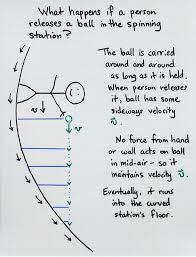 What happens if a person
releases a ball in the spinning
station?
The ball is carried
around and around
as long as it is held.
When person releases
it, ball has some
sideways velocity
v.
v
v
No force from hand
or wall acts on ball
in mid-air - so it
maintains velocity v.
Eventually, it runs
into the curved
station's floor.